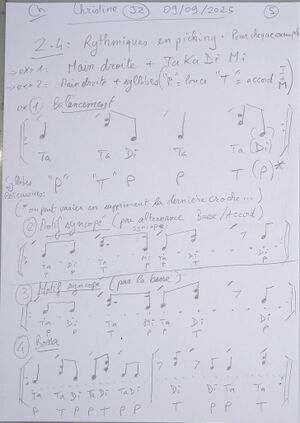 Christine (J2) 09/09/2025 (5)
2.4: Rythmiques en picking. Pour chaque exemple
→ ex 1: Main droite + Ta Ka Di Mi
→ ex 2: Main droite + syllabes ("P" = Pouce "T" = accord I M
ex ① Balancement
Ta Ta Di Ta Ta (Di)
Syllabes "P" "T" P P T (P)*
Percussives:
* on peut varier en supprimant la dernière croche...
② Motif syncopé (par alternance Basse/Accord)
syncope
Ta Di Ta Mi Ta Di
P P T P T P
③ Motif syncopé (par la basse)
Ta Di Ta Mi Ta Di
P P T P T P
④ Bossa
Ta Ta Di Ta Ta Di Di Di Ta Ta
P T P P T P P T P T P T